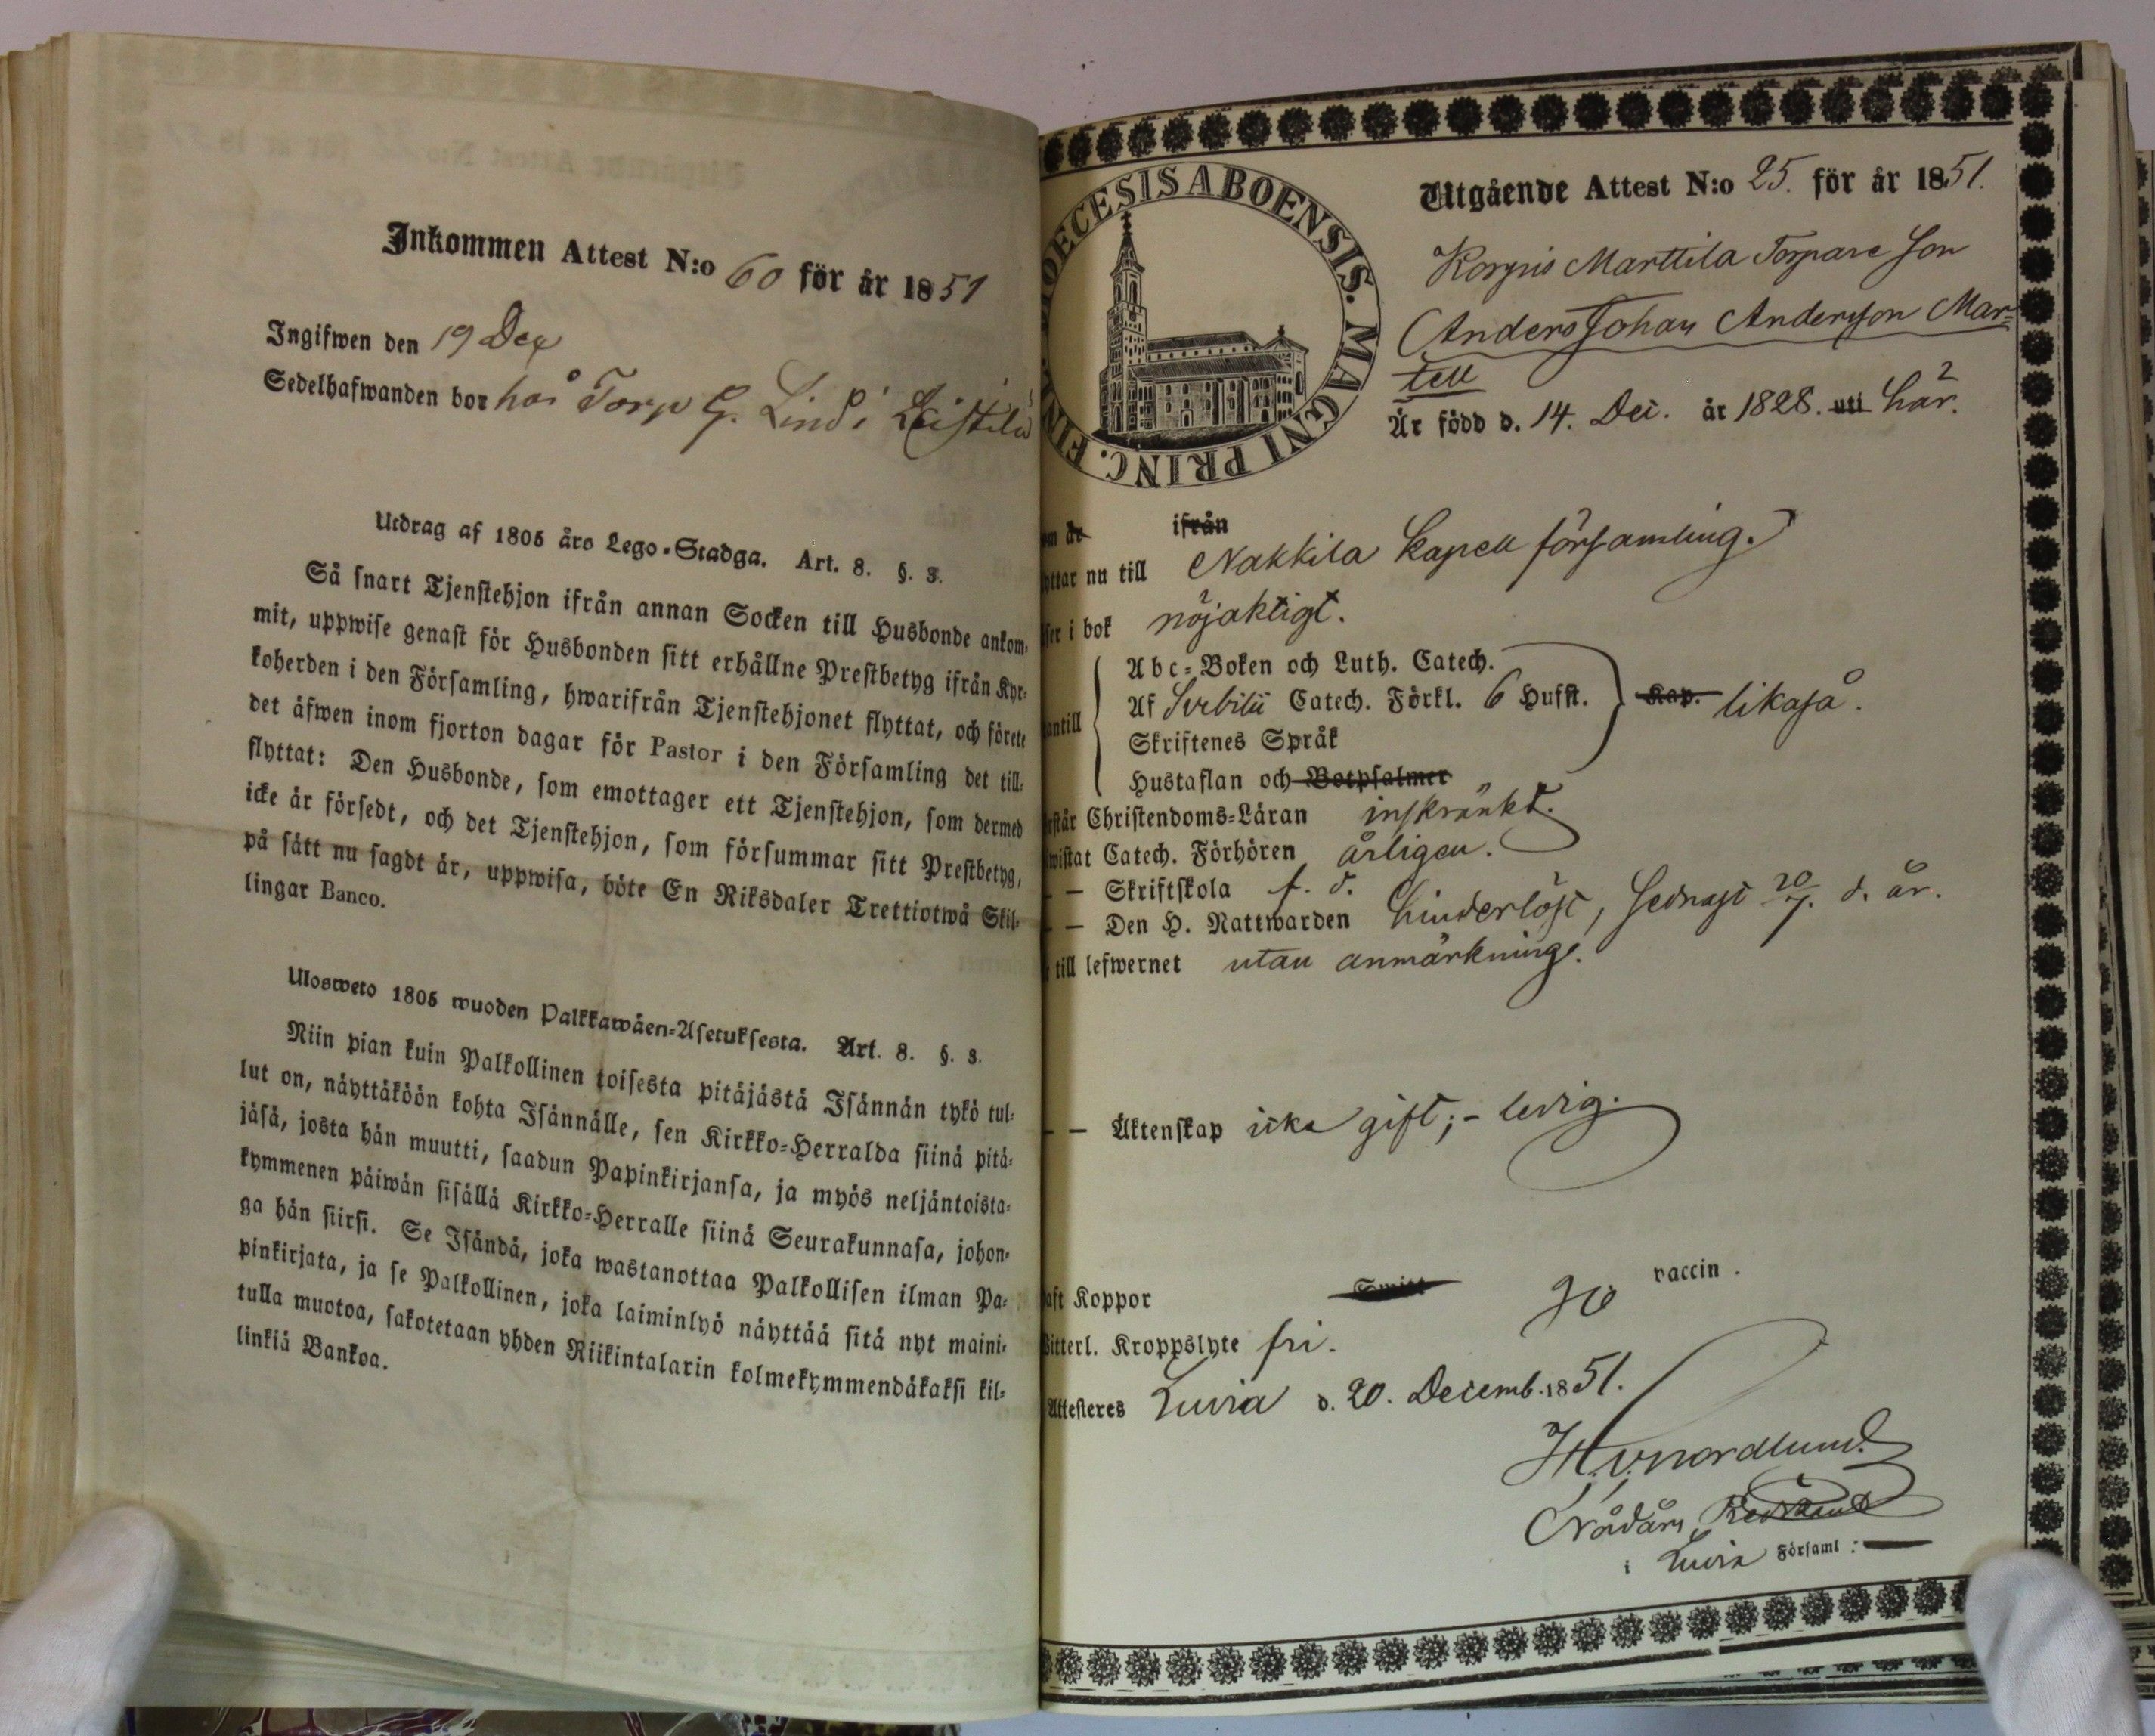 Inkommen Attest N:o 60 för år 1851
Ingifwen den 19 Dec
Sedelhafwanden bor hos Torp G. Lind i Leistilä
Utdrag af 1805 års Lego-Stadga. Art. 8. §. 3.
Så snart Tjenstehjon ifrån annan Socken till Husbonde ankom-
mit, uppwise genast för Husbonden sitt erhållne Prestbetyg ifrån Kyr-
koherden i den Församling, hwarifrån Tjenstehjonet flyttat, och förete
det äfwen inom fjorton dagar för Pastor i den Församling det till-
flyttat: Den Husbonde, som emottager ett Tjenstehjon, som dermed
icke är försedt, och det Tjenstehjon, som försummar sitt Prestbetyg,
på sätt nu sagdt är, uppwisa, böte En Riksdaler Trettiotwå Skil-
lingar Banco.
Ulosweto 1805 wuoden Palkkawäen-Asetuksesta. Art. 8. §. 3.
Niin pian kuin Palkollinen toisesta pitäjästä Isännän tykö tul-
lut on, näyttäköön kohta Isännälle, sen Kirkko-Herralda siinä pitä-
jäsä, josta hän muutti, saadun Papinkirjansa, ja myös neljäntoista-
kymmenen päiwän sisällä Kirkko-Herralle siinä Seurakunnasa, johon-
ga hän siirsi. Se Isändä, joka wastanottaa Palkollisen ilman Pa-
pinkirjata, ja se Palkollinen, joka laiminlyö näyttää sitä nyt maini-
tulla muotoa, sakotetaan yhden Riikintalarin kolmekymmendäkaksi kil-
linkiä Bankoa.
DIOECESIS ABOENSIS. MAGNI PRINC. FINL.
Utgående Attest N:o 25. för år 1851.
Korpis Marttila Torpare Son
Anders Johan Andersson Mar-
tell
Är född d. 14. Dec. år 1828. uti här.
om de ifrån
yttar nu till Nakkila Kapell församling.
ser i bok nöjaktigt.
Abc-Boken och Luth. Catech.
antill Af Svebilii Catech. Förkl. 6 Hufst. Kap. likaså.
Skriftenes Språk
Hustaflan och Botpsalmer
rstår Christendoms-Läran inskränkt.
wistat Catech. Förhören årligen.
— — Skriftskola f. d.
— — Den H. Nattwarden hinderlöst, sednast 20/7. d. år.
till lefwernet utan anmärkning.
— — Äktenskap icke gift; - ledig.
aft Koppor vaccin.
Witterl. Kroppslyte fri.
Attesteres Luvia d. 20. Decemb. 1851.
H. V. Nordlund
Nådårs Predikant
i Luvia Församl: